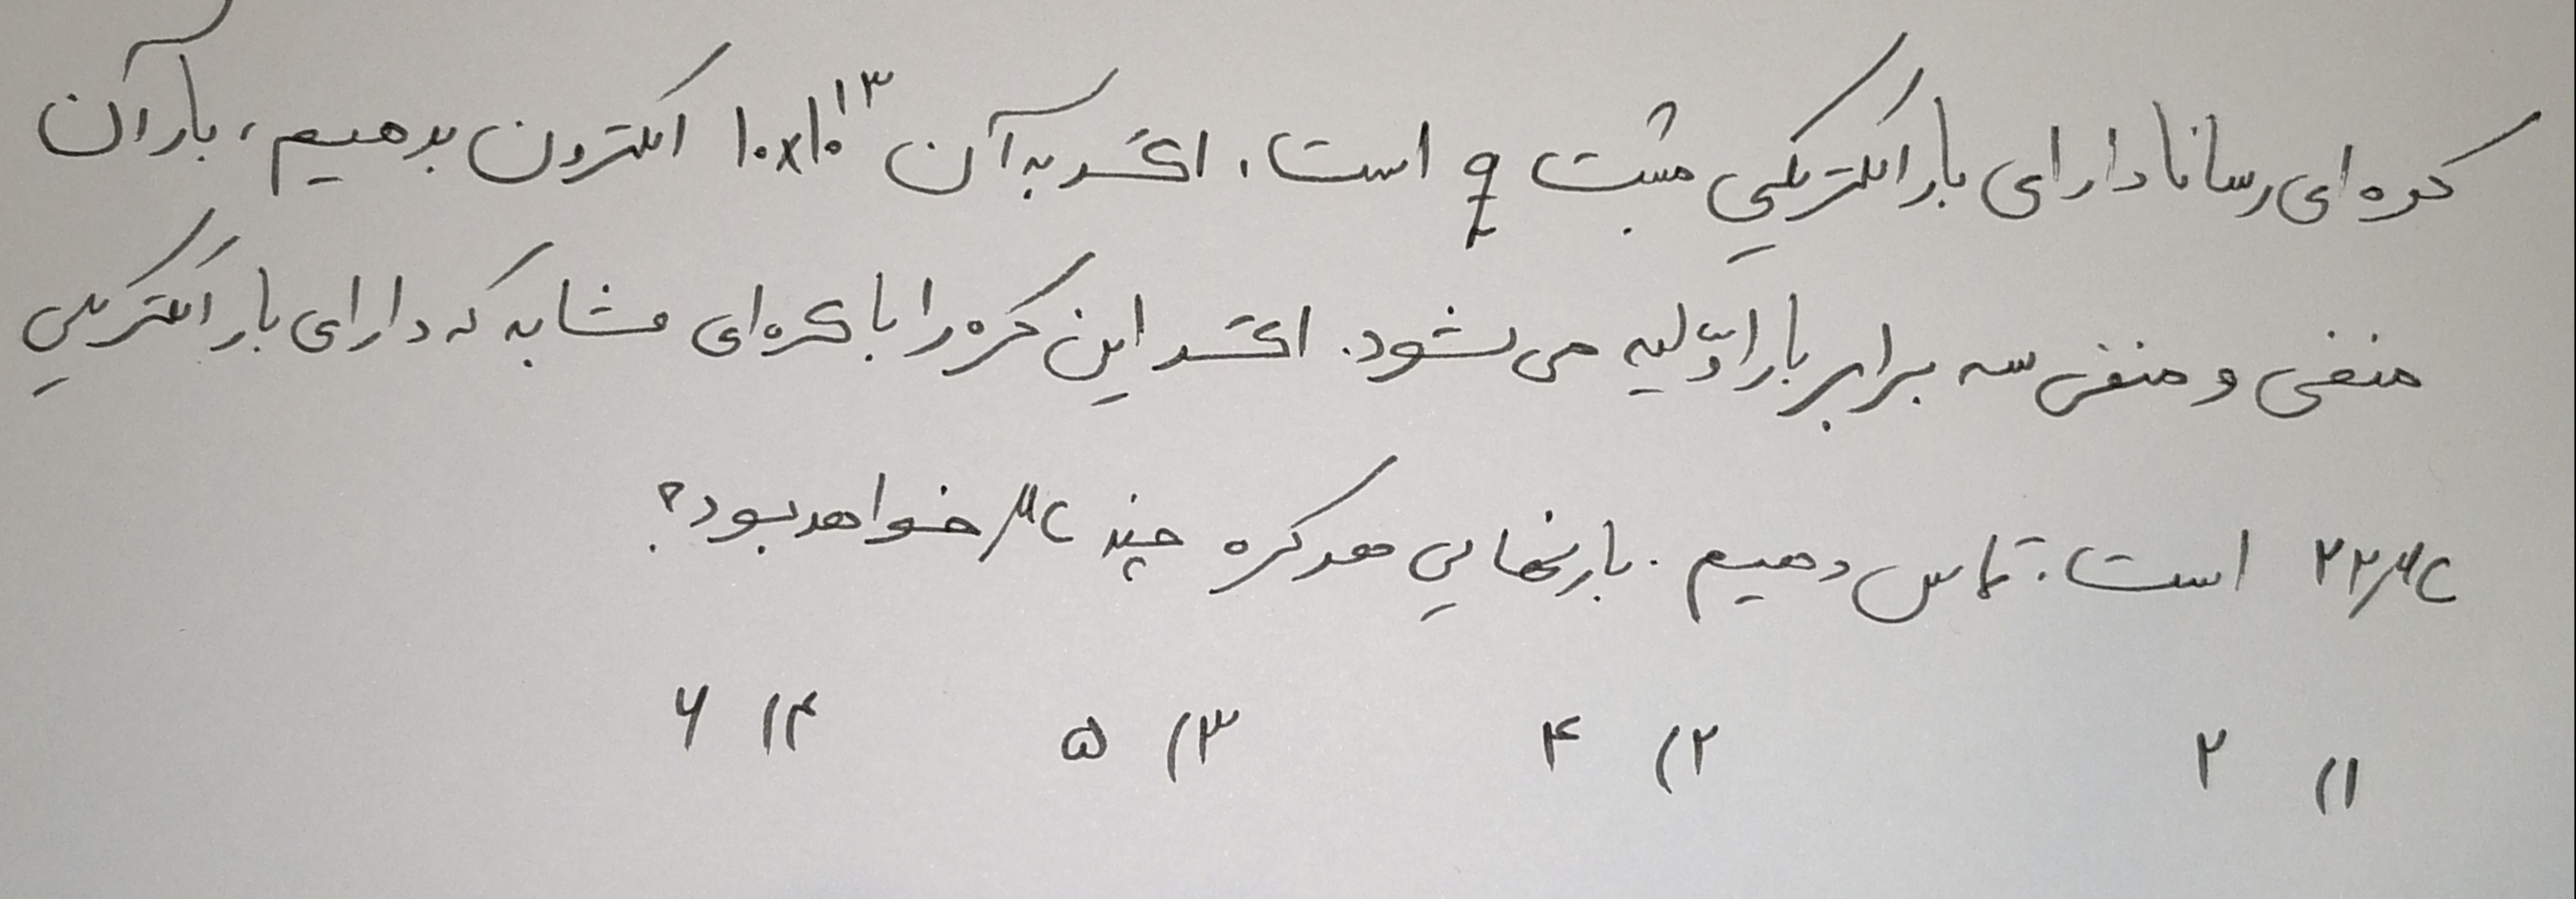 کره ای رسانا دارای بار الکتریکی مثبت q است. اگر به آن ۱۰×۱۰^۱۳ الکترون بدهیم، بار آن
منفی و منفی سه برابر بار اوّلیه می شود. اگر این کره را با کره ای مشابه که دارای بار الکتریکی
۲۳μC است. تماس دهیم. بار نهایی هر کره چند μC خواهد بود؟
۱) ۲ ۲) ۴ ۳) ۵ ۴) ۶